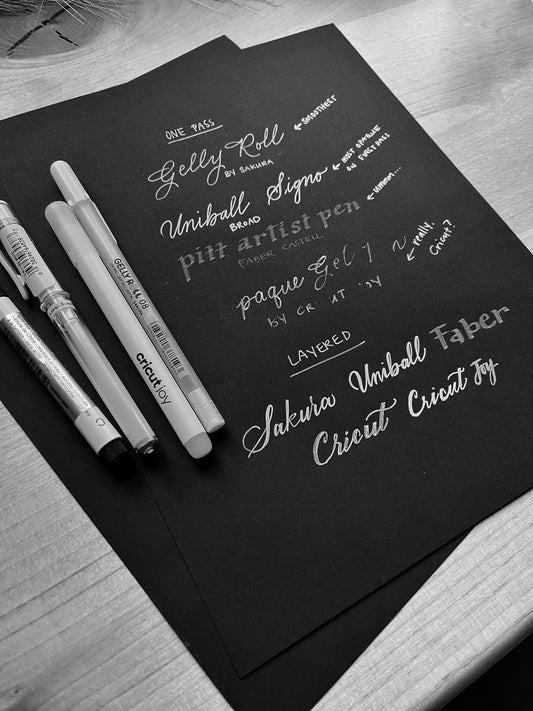 ONE PASS
Gelly Roll ← SMOOTHEST
BY SAKURA
Uniball Signo ← MOST OPAQUE
ON FIRST PASS
BROAD
pitt artist pen ← ummm...
FABER CASTELL
paque Gel ← really,
Cricut?
BY CRICUT JOY
LAYERED
Sakura Uniball Faber
Cricut Cricut Joy
GELLY ROLL 08
cricut joy